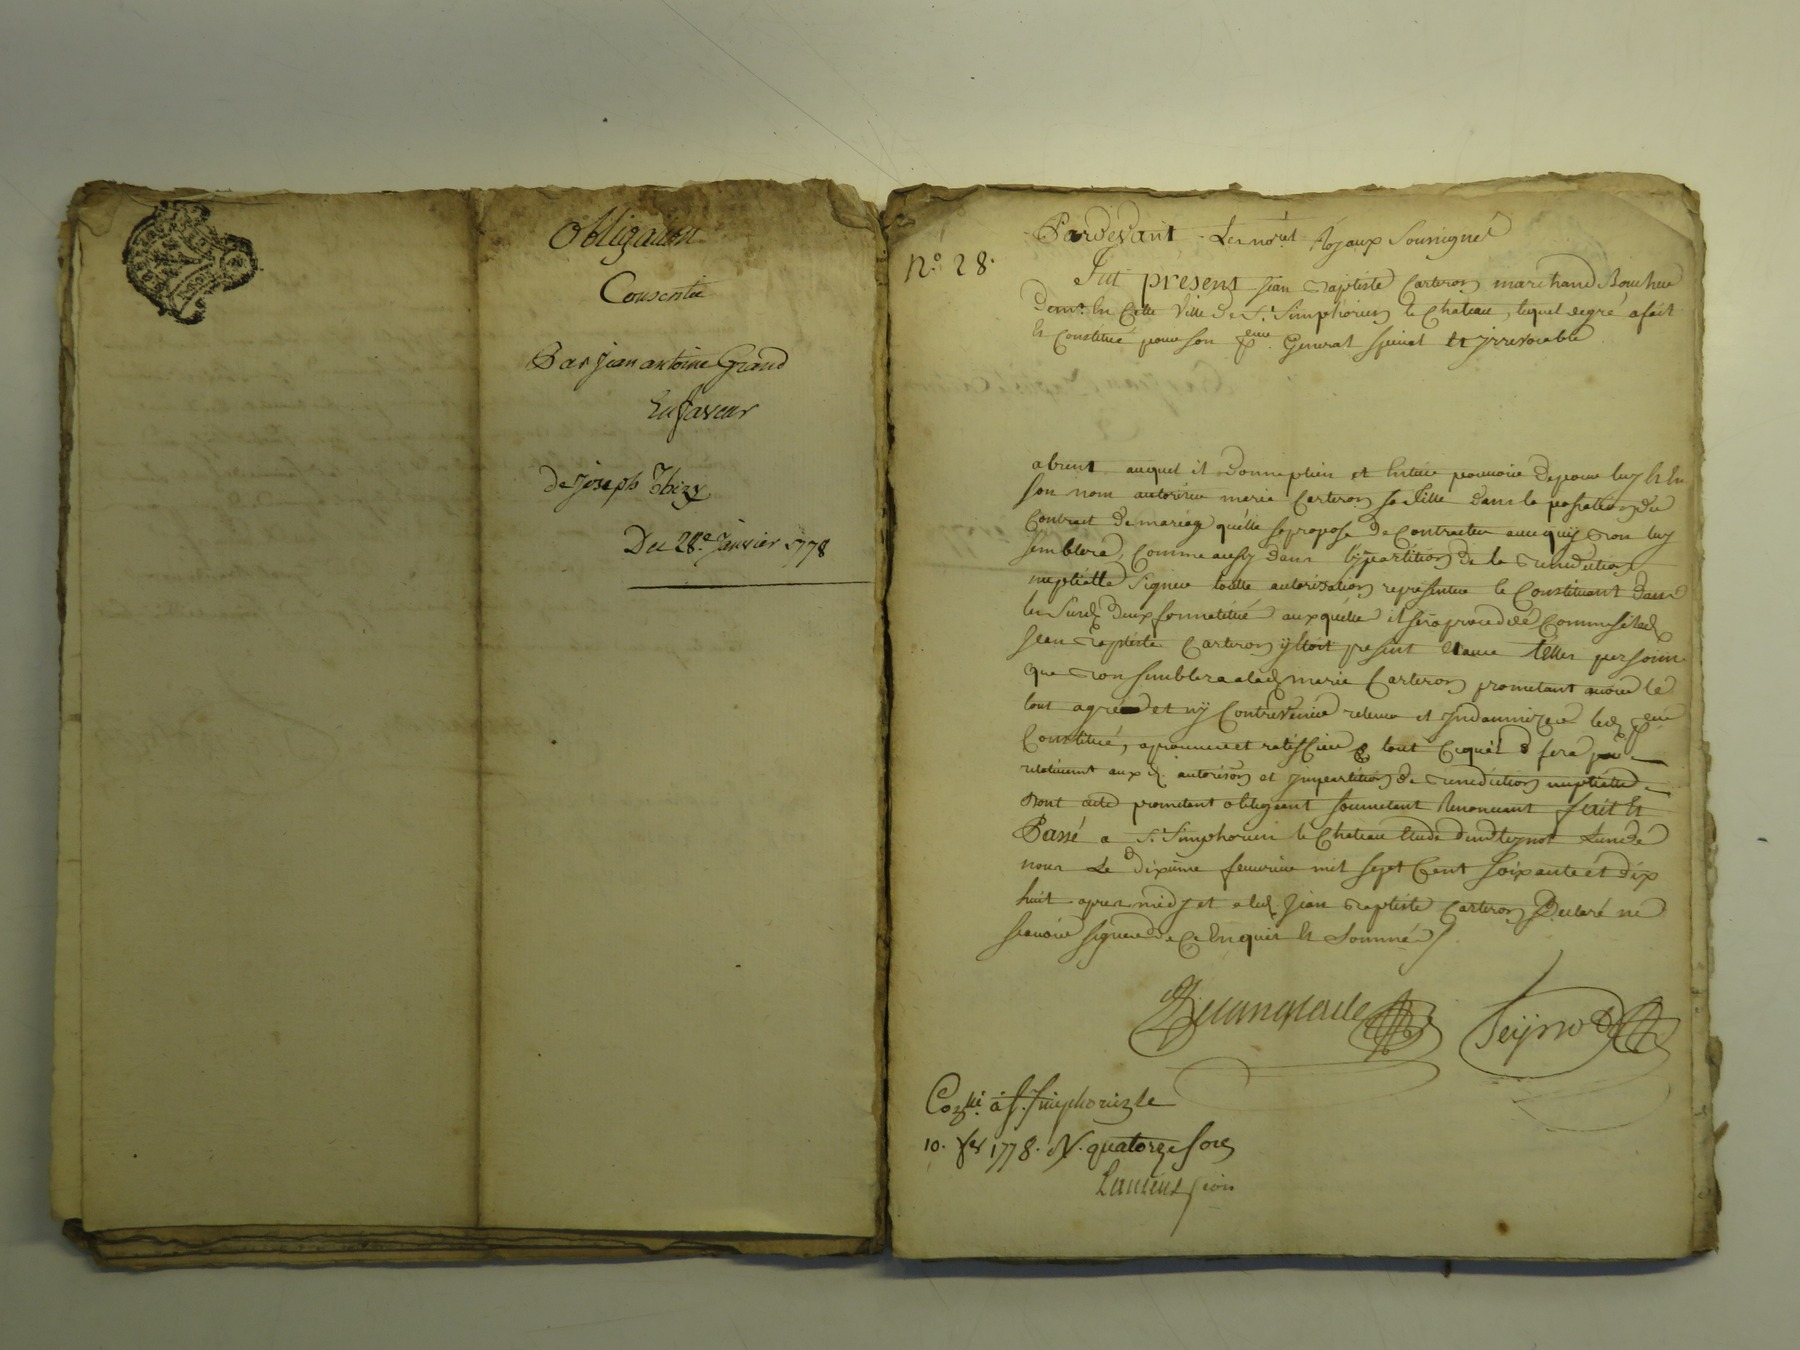 Obligation
Consentie
Par jean antoine Grand
En faveur
de joseph
Du 28e. janvier 1778
N.o 28.
Pardevant Les no.res Royaux Soussignés
Fut present jean Baptiste Carteron marchand Boucher
dem.t En Cette Ville de S.t Simphorien le Chateau, lequel degré a fait
Et Constitué pour son General special et jrrevocable
absent auquel il donne plein et Entier pouvoir de pour luy Et En
son nom autoriser marie Carteron sa fille dans la passation du
Contract de mariage qu'elle se propose de Contracter avec quy bon luy
semblera, Comme aussy dans l'jmpartition de la Benediction
nuptialle signer toutte autorisation representer le Constituant dans
les deux auxquelles il sera procedé de Comme si led.
jean Baptiste Carteron y Etoit present Et avec telles personne
que bon semblera a lad. marie Carteron promettant avoir le
tout agréé et ny Contrevenir relever et jndamnizer led.
Constitué, aprouver et ratiffier tout Ce qui sera
relativement aux d. autorison et jmpartition de Benediction nuptialle
Dont acte promettant obligeant soumettant Renonceant fait Et
Passé a S.t Simphorien le Chateau Etude dud. Teynot L'un de
nous Le dixieme feuvrier mil sept Cent soixante et dix
huit apres midy et a led. Jean Baptiste Carteron Declaré ne
scavoir signer de Ce Enquis Et Sommé
Teijnod
Con.lé à S.t Simphorien le
10. fer 1778. R. quatorze sols